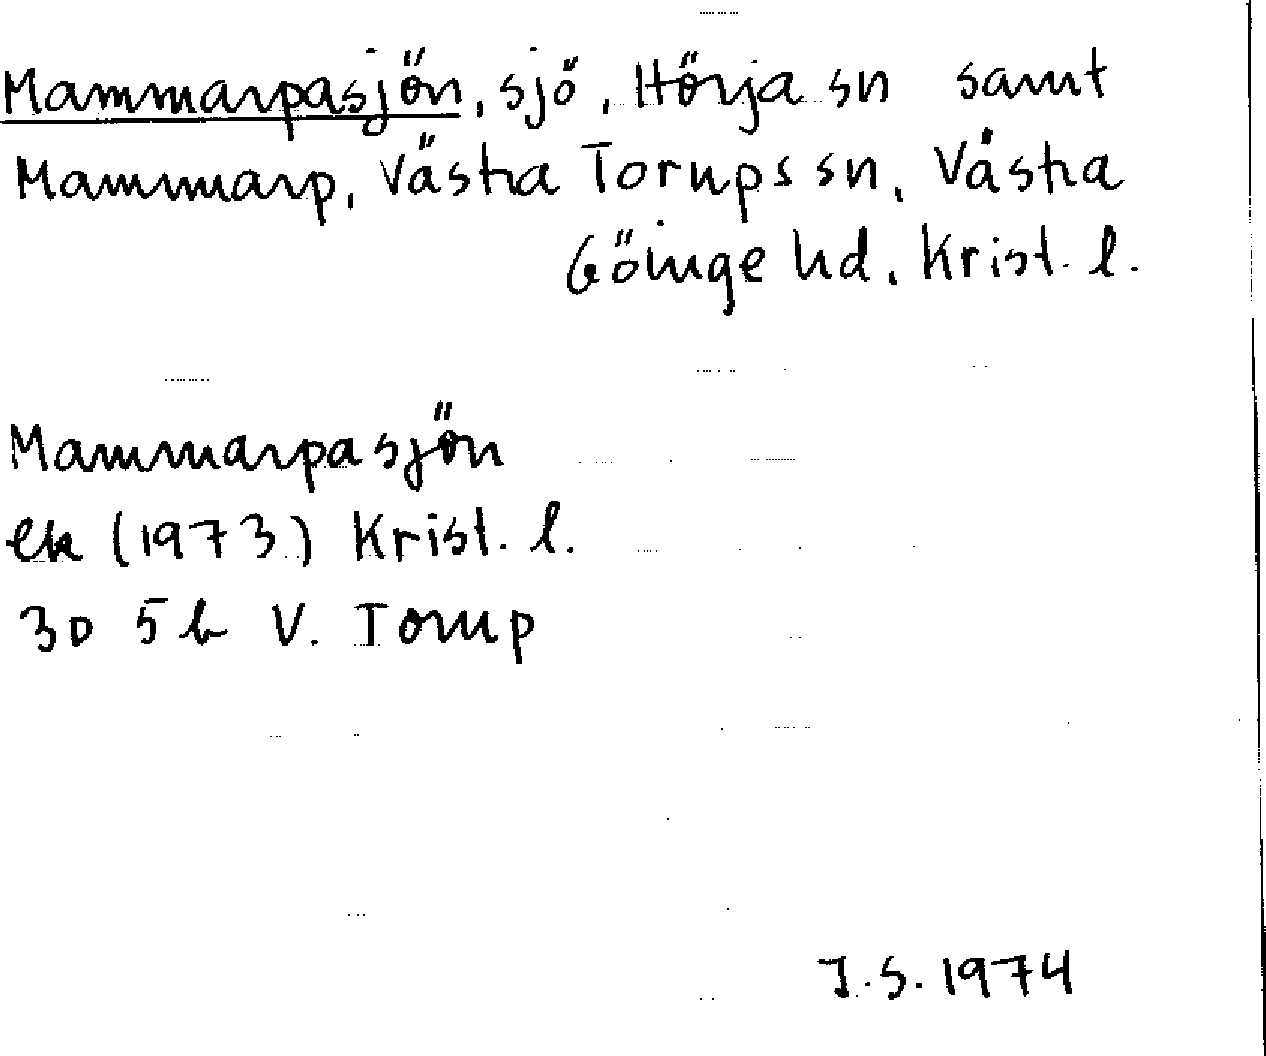 Mammarpasjön, sjö, Hörja sn samt
Mammarp, Västra Torups sn, Västra
Göinge hd, Krist. l.
Mammarpasjön
ek (1973) Krist. l.
3D 5b V. Torup
I.S. 1974